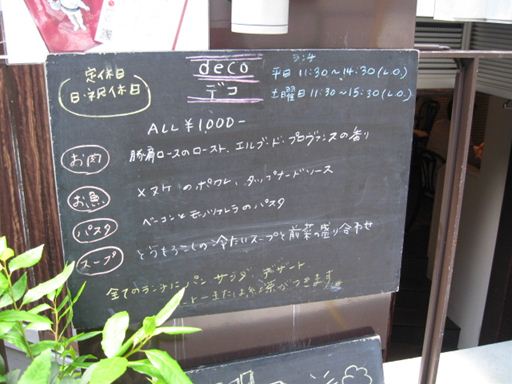 定休日
日・祝休日
deco
デコ
ランチ
平日 11:30~14:30(L.O.)
土曜日 11:30~15:30(L.O.)
ALL ¥1,000-
お肉
豚肩ロースのロースト、エルブ・ド・プロヴァンスの香り
お魚
メヌケのポワレ、タップナードソース
パスタ
ベーコンとモッツァレラのパスタ
スープ
とうもろこしの冷たいスープと前菜の盛り合わせ
全てのランチにパン サラダ、デザート
コーヒーまたは紅茶ができます